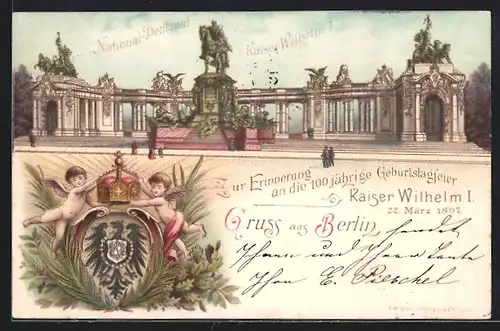 National-Denkmal Kaiser Wilhelm I
Zur Erinnerung
an die 100jährige Geburtstagfeier
Kaiser Wilhelm I.
22. März 1897.
Gruss aus Berlin, sendet
Ihnen und Ihrer Tante
Ihr E. Pieschel